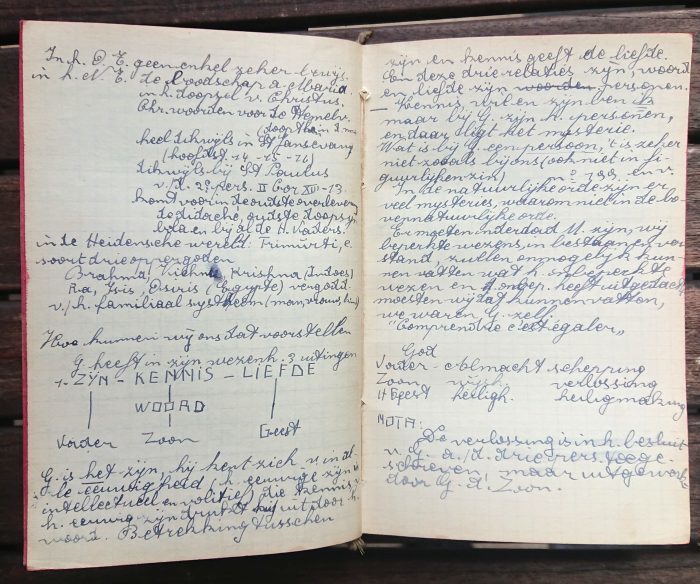 In h. O. T. geen enkel zeker bewijs.
in h. N. T. de boodschap a. Maria
in h. doopsel v. Christus.
Chr. woorden voor de Hemelv.
heel dikwijls in St Jansevang
(hoofdst. 14 - 15 - 16)
dikwijls bij St Paulus
v./d. 2e pers. II Cor XIII - 13.
komt voor in de oudste overlevering
de didache, oudste doopsymb
bola en bij al de H. Vaders.
in de Heidensche wereld: Trimurti, e.
soort drie oppergoden
Brahma, Krishna (Indoes)
Ra, Isis, Osiris (Egypte) vergodd.
v./h. familiaal systeem (man, vrouw, kind)
Hoe kunnen wij ons dat voorstellen
G. heeft in zijn wezen h. 3 uitingen
1. ZIJN - KENNIS - LIEFDE
WOORD
Vader Zoon Geest
G. is het zijn, hij kent zich v. in al
de eeuwigheid (h. eeuwige zijn is
intellectueel en volitief) die kennis v.
h. eeuwig zijn drukt uit door h.
woord. Betrekking tusschen
zijn en kennis geeft de liefde.
En deze drie relaties zijn, woord
en liefde zijn personen.
- Kennis, wil en zijn ben ik
maar bij G. zijn h. personen,
en daar ligt het mysterie.
Wat is bij G. een persoon, 't is zeker
niet zooals bij ons (ook niet in fi-
guurlijken zin)
In de natuurlijke orde zijn er
veel mysteries, waarom niet in de bo-
vennatuurlijke orde.
Er moet inderdaad M. zijn, wij
beperkte wezens, in bestaan en ver
stand, zullen onmogelijk kun
nen vatten wat h. onbeperkte
wezen en heeft uitgedacht
moesten wij dat kunnen vatten,
we waren G. zelf.
"Comprendre c'est égaler"
God
Vader - Almacht schepping
Zoon wijsh. verlossing
H Geest heiligh. heiligmaking
NOTA:
De verlossing is in h. besluit
v. G. a./d. drie pers. toege-
schreven, maar uitgewerkt
door G. d. Zoon.